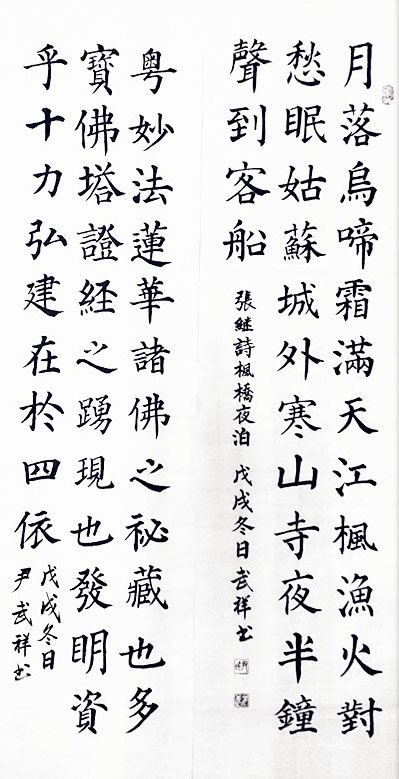 月落烏啼霜滿天江楓漁火對
愁眠姑蘇城外寒山寺夜半鐘
聲到客船
張继詩楓橋夜泊 戊戌冬日武祥书
粵妙法蓮華諸佛之祕藏也多
寶佛塔證経之踴現也發明資
乎十力弘建在於四依
戊戌冬日
尹武祥书